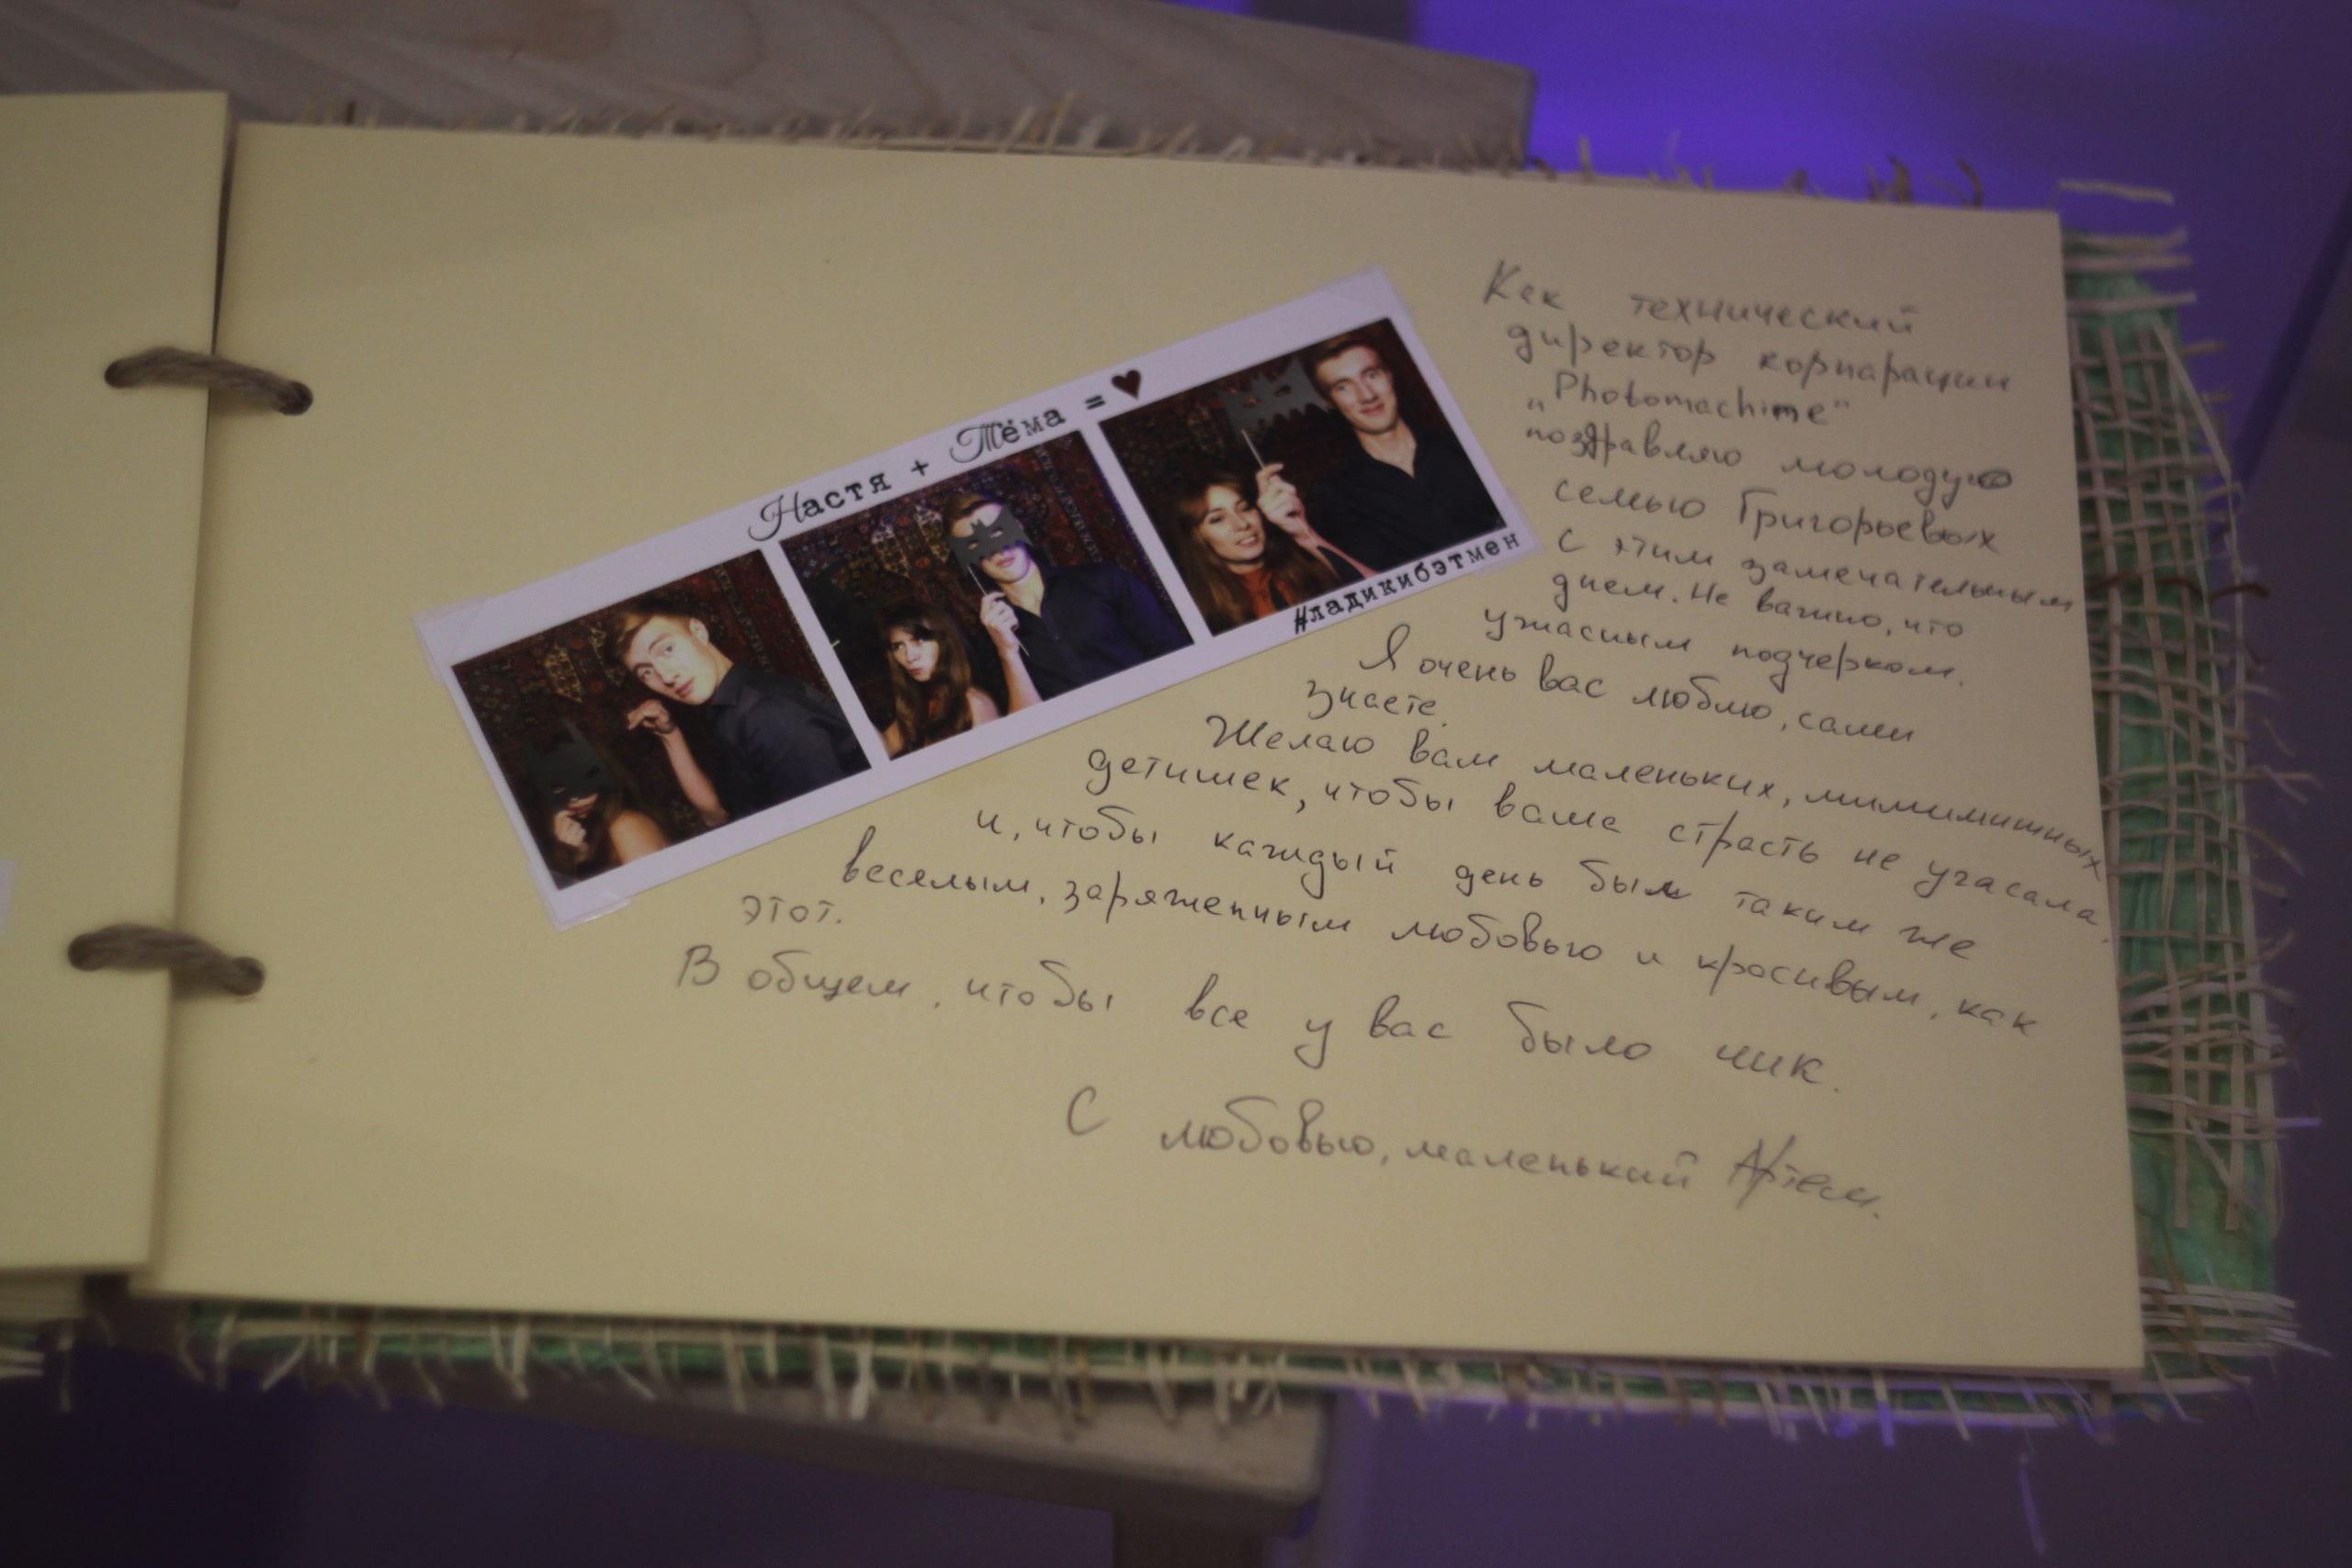 Настя + Тёма = ♥
#ладикибэтмен
Как технический
директор корпарации
„Photomachime"
поздравляю молодую
семью Григорьевых
с этим замечательным
днем. Не важно, что
ужасным подчерком.
Я очень вас люблю, сами
знаете.
Желаю вам маленьких, мимимишных
детишек, чтобы ваша страсть не угасала,
и, чтобы каждый день был таким же
веселым, заряженным любовью и красивым, как
этот.
В общем, чтобы все у вас было чик.
С любовью, маленький Артем.